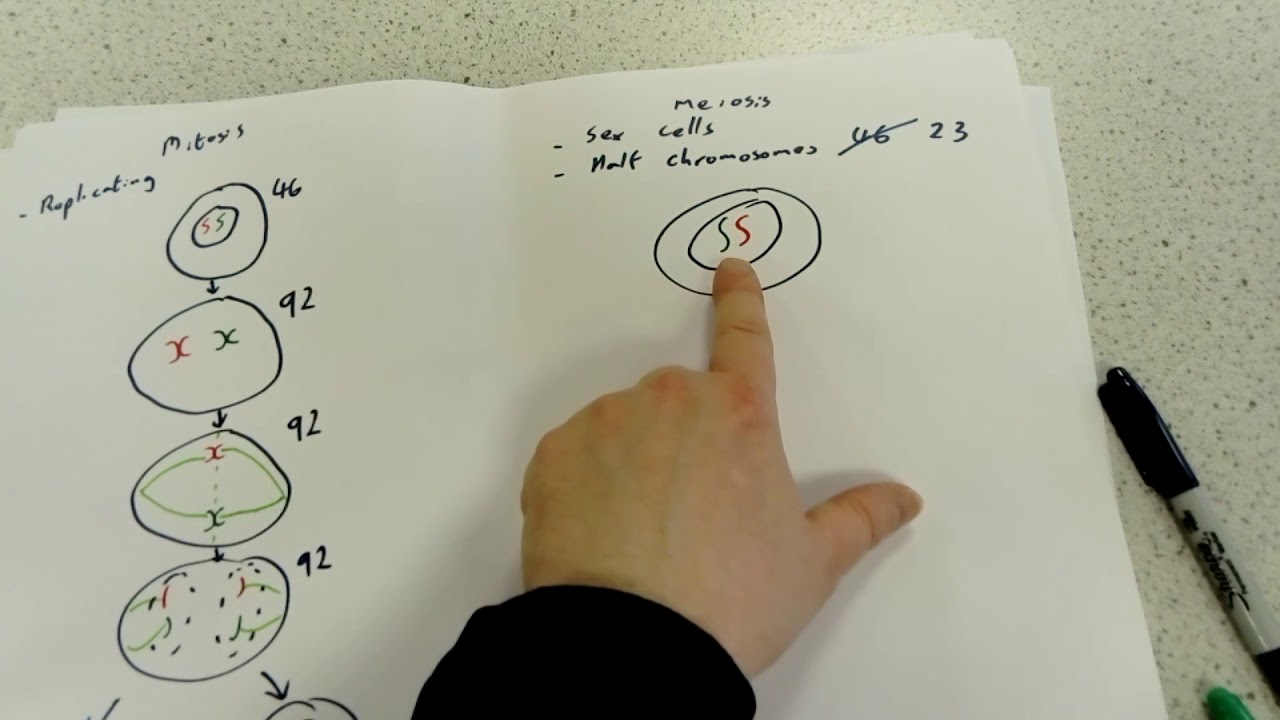 Mitosis
- Replicating
46
92
92
92
Meiosis
- Sex cells
- Half chromosomes 46 23
Sharpie